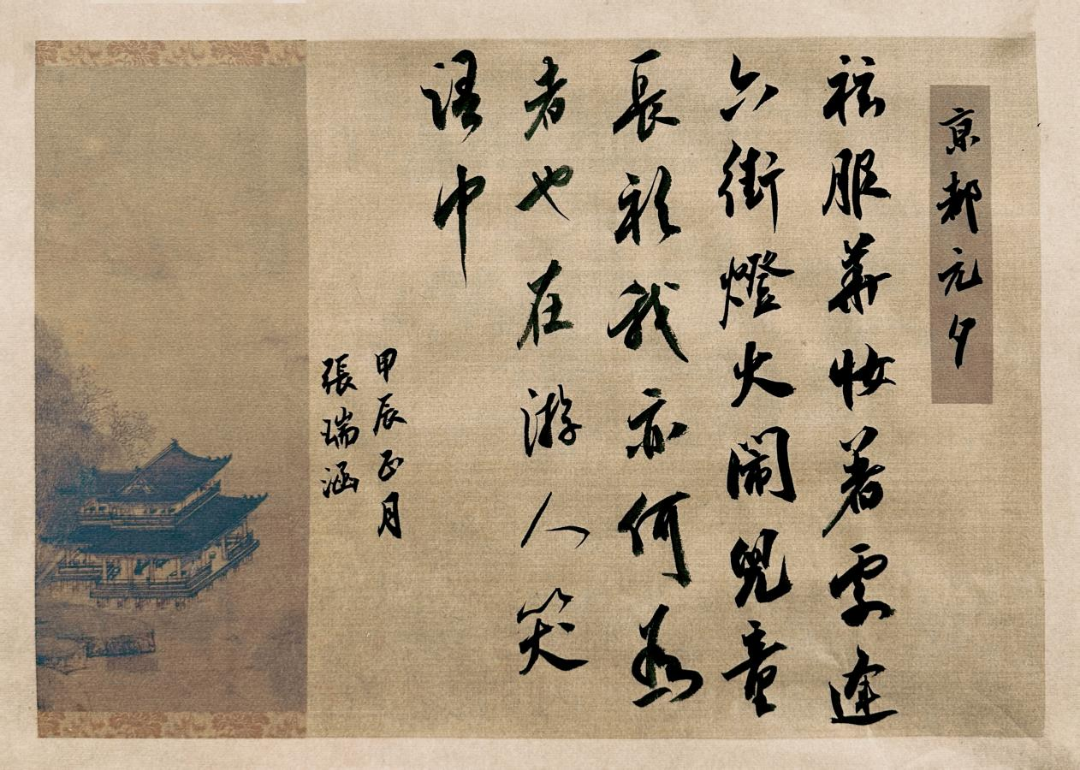 京都元夕
袨服華妝著處逢
六街燈火鬧兒童
長衫我亦何為
者也在游人笑
語中
甲辰正月
張瑞涵